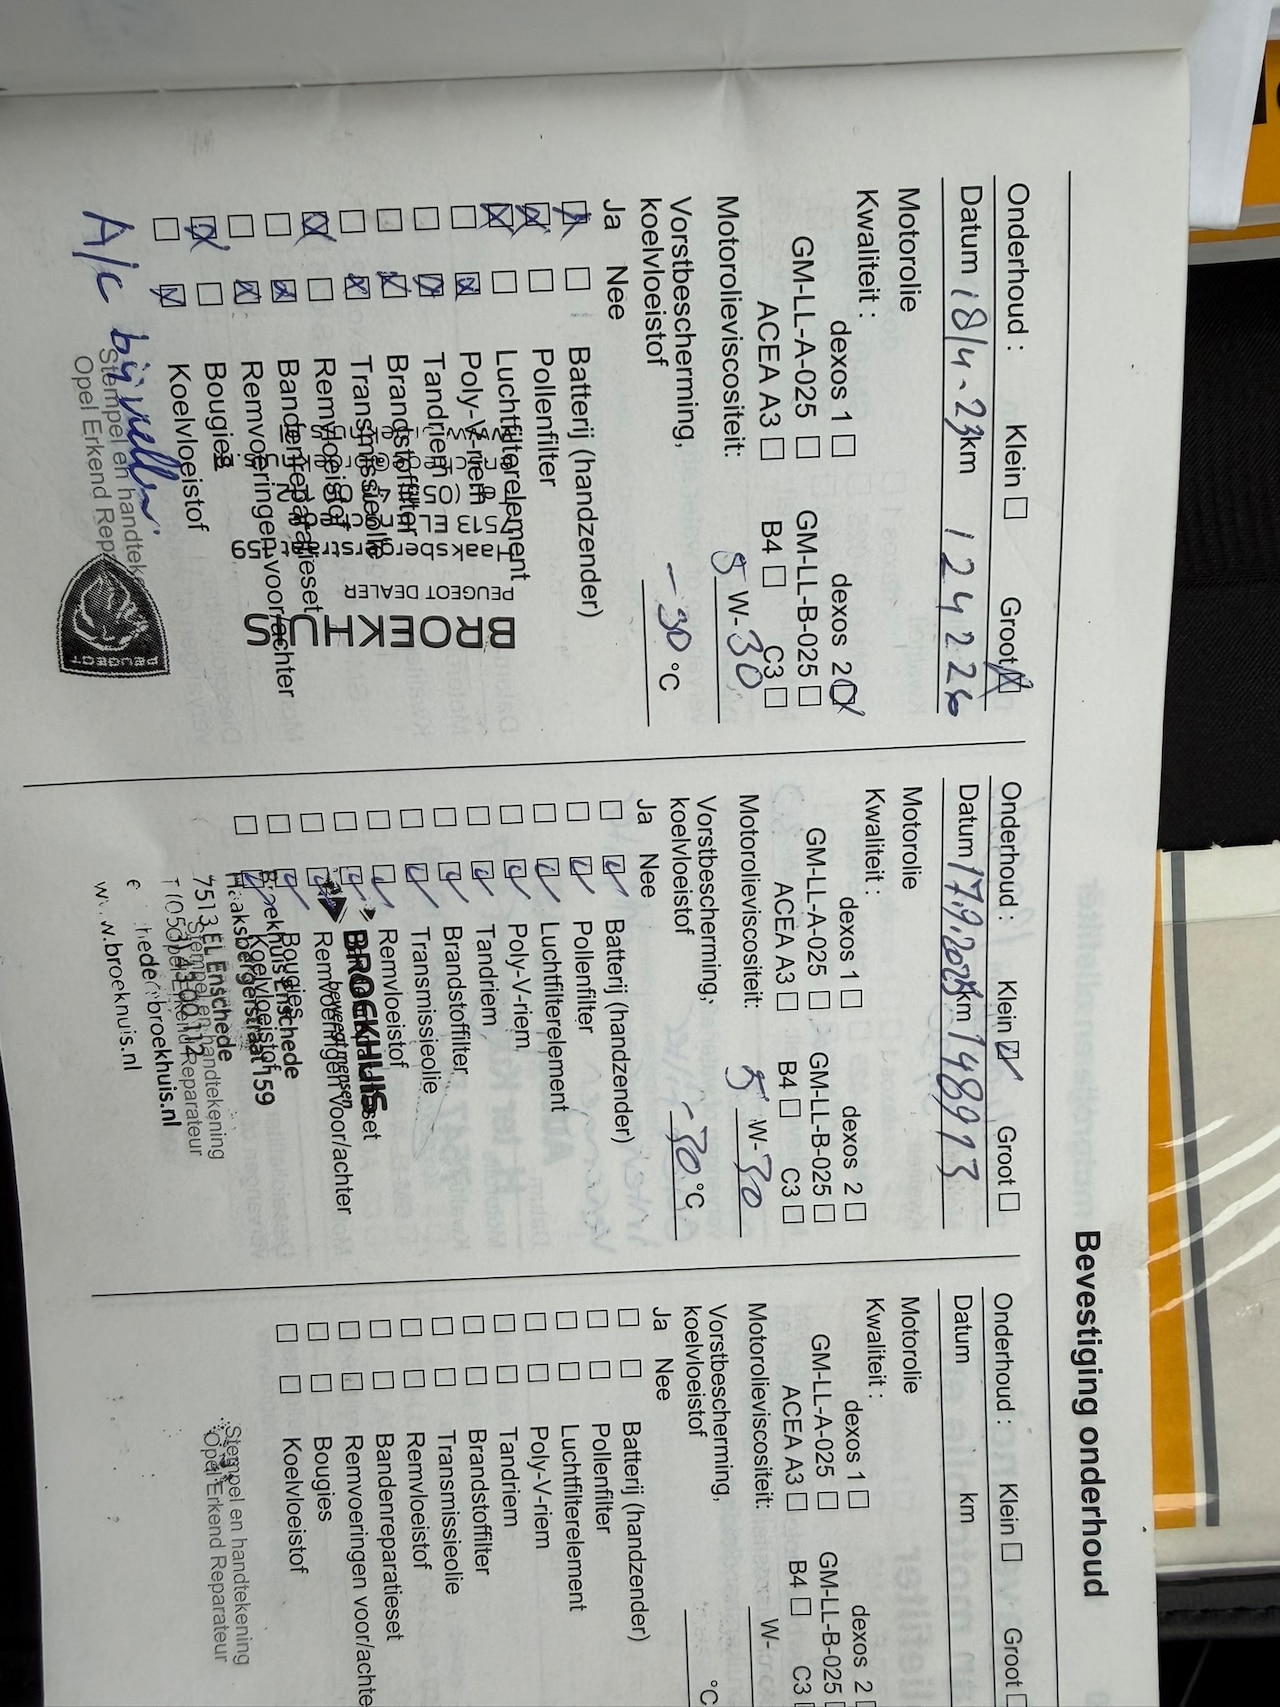 Bevestiging onderhoud
Onderhoud : Klein ☐ Groot ☒
Datum 18/4-23 km 124226
Motorolie
Kwaliteit : dexos 1 ☐ dexos 2 ☒
GM-LL-A-025 ☐ GM-LL-B-025 ☐
ACEA A3 ☐ B4 ☐ C3 ☐
Motorolieviscositeit: 5 W-30
Vorstbescherming,
koelvloeistof -30 °C
Ja Nee
☒ ☐ Batterij (handzender)
☒ ☐ Pollenfilter
☒ ☐ Luchtfilterelement
☐ ☒ Poly-V-riem
☐ ☒ Tandriem
☐ ☒ Brandstoffilter
☐ ☒ Transmissieolie
☒ ☐ Remvloeistof
☐ ☒ Bandenreparatieset
☐ ☒ Remvoeringen voor/achter
☒ ☐ Bougies
☐ ☒ Koelvloeistof
A/c bijvullen.
Stempel en handtek
Opel Erkend Rep
BROEKHUIS
PEUGEOT DEALER
Haaksbergerstraat 159
PEUGEOT
Onderhoud : Klein ☑ Groot ☐
Datum 17.9.2025 km 148913
Motorolie
Kwaliteit : dexos 1 ☐ dexos 2 ☐
GM-LL-A-025 ☐ GM-LL-B-025 ☐
ACEA A3 ☐ B4 ☐ C3 ☐
Motorolieviscositeit: 5 W-30
Vorstbescherming,
koelvloeistof -30 °C
Ja Nee
☐ ☑ Batterij (handzender)
☐ ☑ Pollenfilter
☐ ☑ Luchtfilterelement
☐ ☑ Poly-V-riem
☐ ☑ Tandriem
☐ ☑ Brandstoffilter
☐ ☑ Transmissieolie
☐ ☑ Remvloeistof
☐ ☑ Bandenreparatieset
☐ ☑ Remvoeringen voor/achter
☐ ☑ Bougies
☐ ☑ Koelvloeistof
Stempel en handtekening
Opel Erkend Reparateur
BROEKHUIS
beweegt mensen
Broekhuis Enschede
Haaksbergerstraat 159
7513 EL Enschede
broekhuis.nl
w.broekhuis.nl
Onderhoud : Klein ☐ Groot ☐
Datum km
Motorolie
Kwaliteit : dexos 1 ☐ dexos 2 ☐
GM-LL-A-025 ☐ GM-LL-B-025 ☐
ACEA A3 ☐ B4 ☐ C3 ☐
Motorolieviscositeit: W-
Vorstbescherming,
koelvloeistof °C
Ja Nee
☐ ☐ Batterij (handzender)
☐ ☐ Pollenfilter
☐ ☐ Luchtfilterelement
☐ ☐ Poly-V-riem
☐ ☐ Tandriem
☐ ☐ Brandstoffilter
☐ ☐ Transmissieolie
☐ ☐ Remvloeistof
☐ ☐ Bandenreparatieset
☐ ☐ Remvoeringen voor/achte
☐ ☐ Bougies
☐ ☐ Koelvloeistof
Stempel en handtekening
Opel Erkend Reparateur